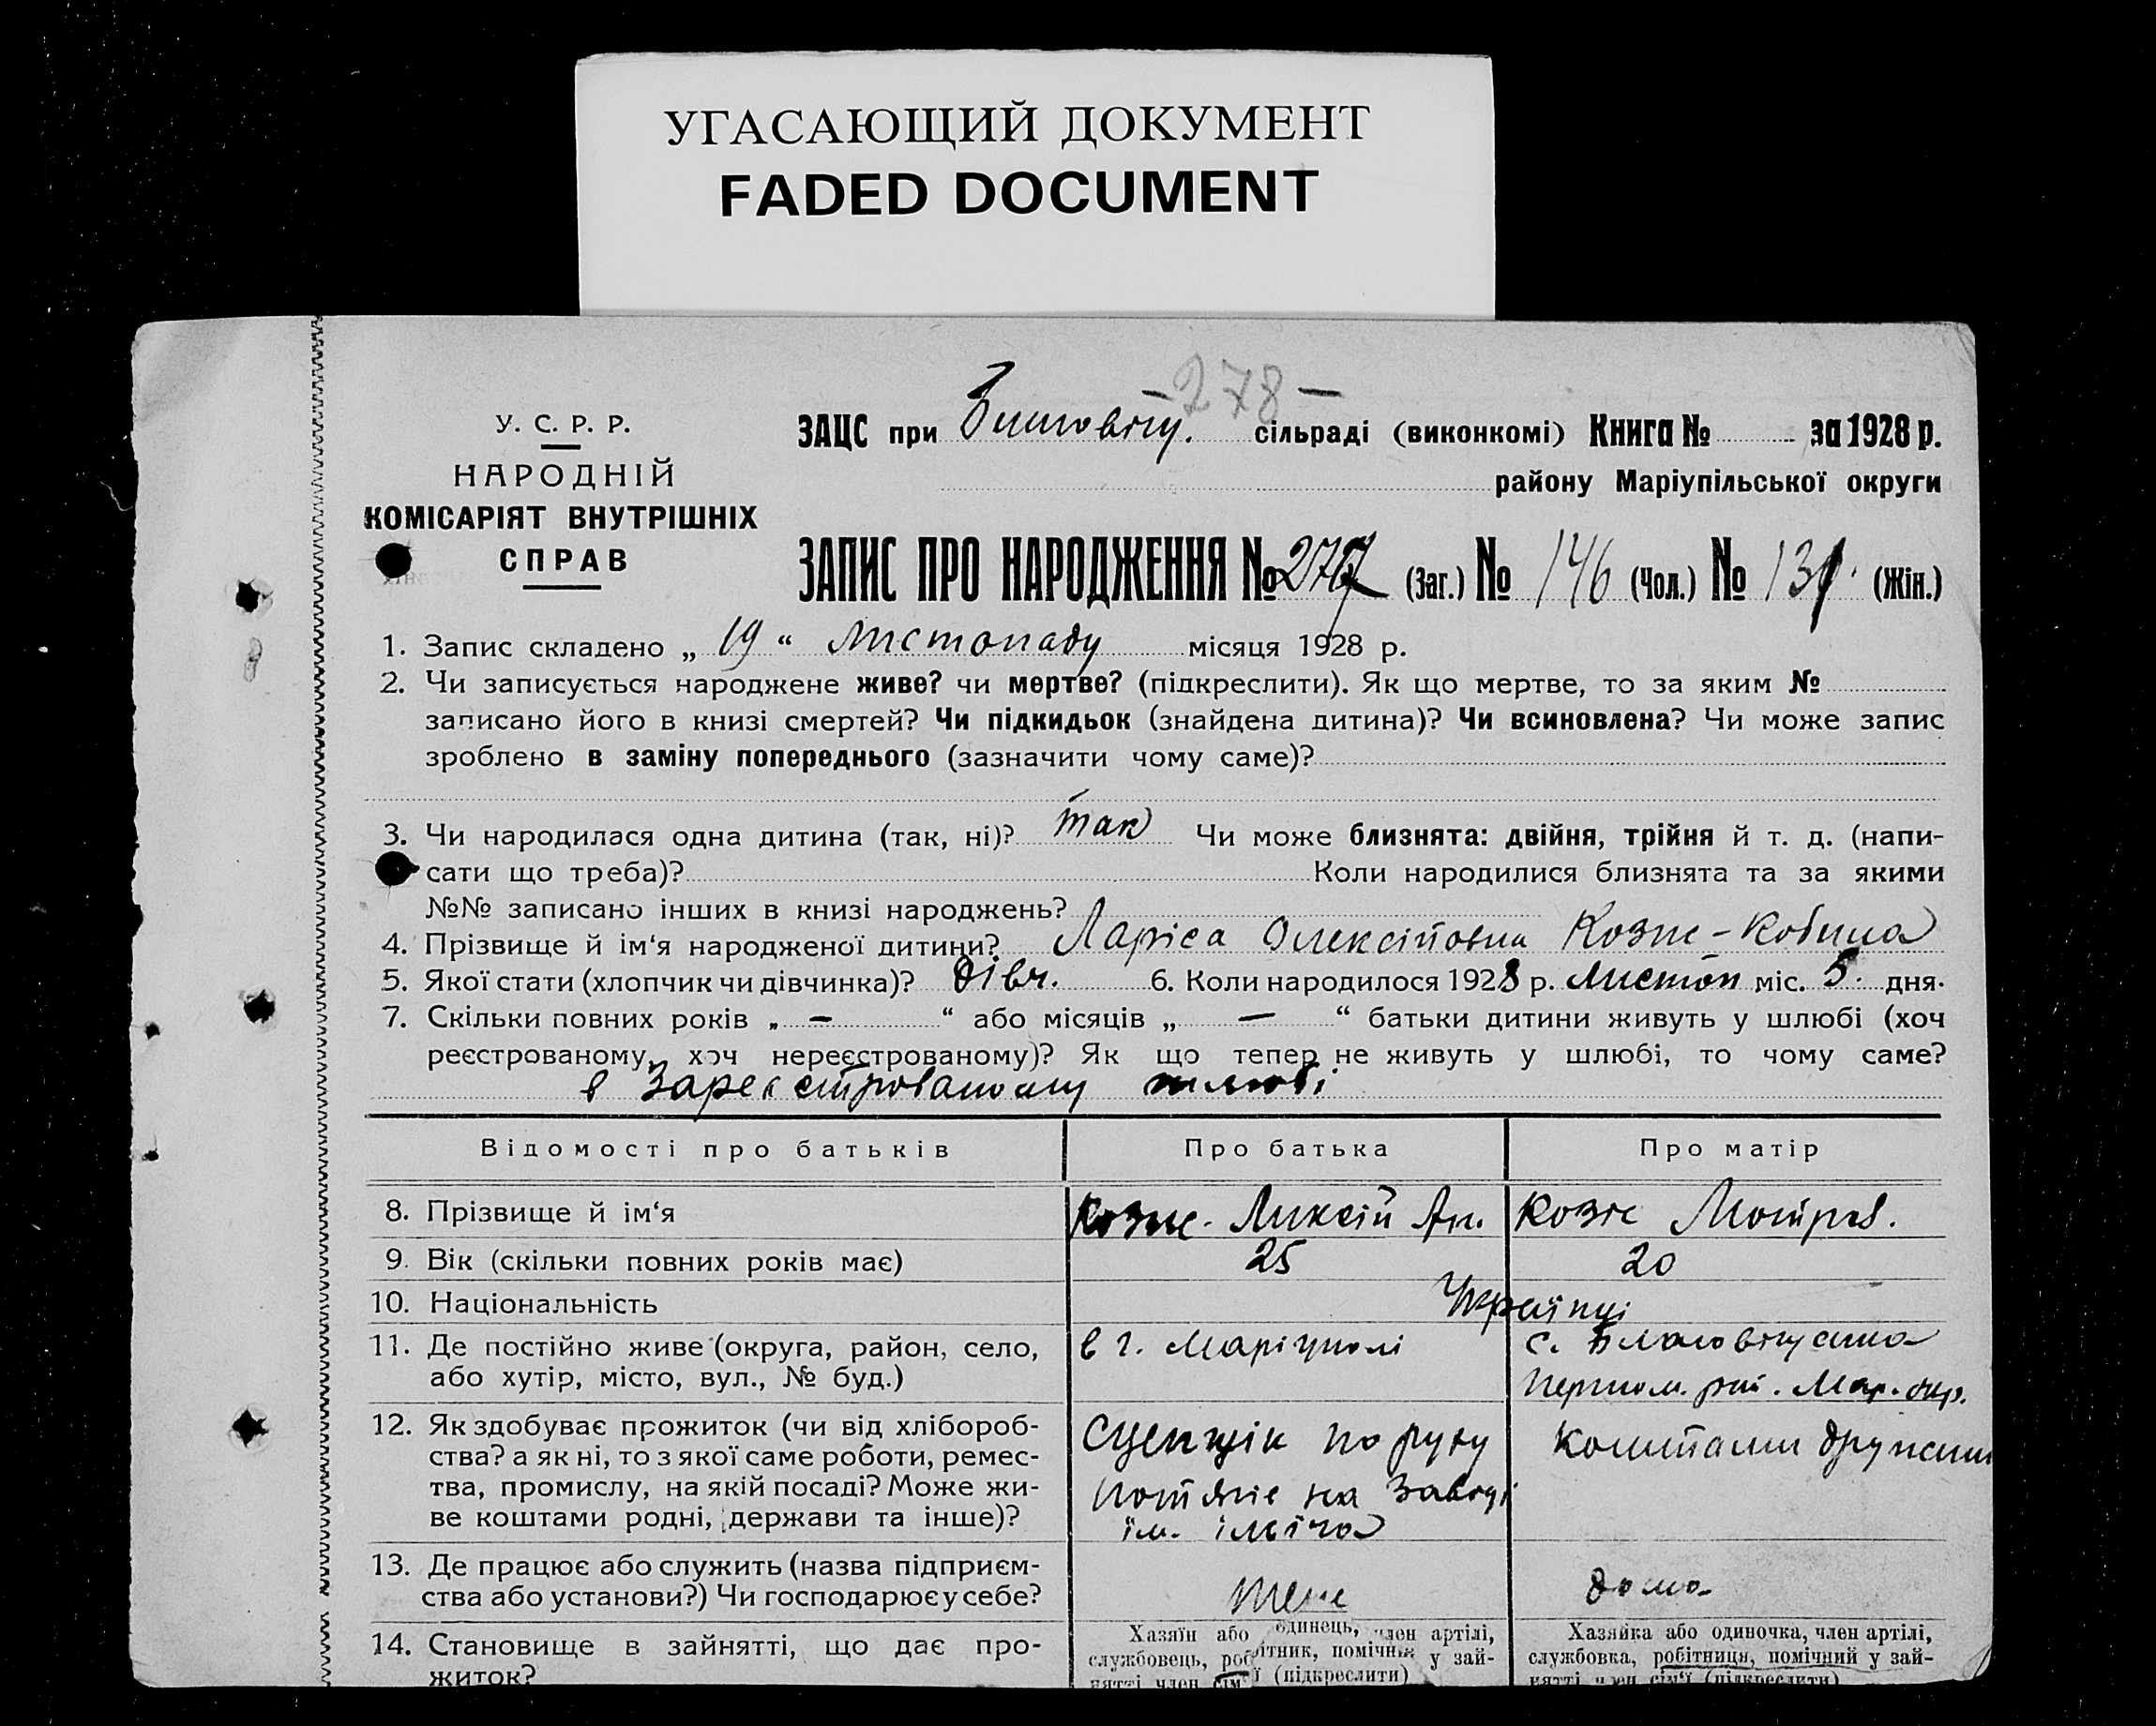 УГАСАЮЩИЙ ДОКУМЕНТ
FADED DOCUMENT
-278-
У. С. Р. Р.
НАРОДНІЙ
КОМІСАРІЯТ ВНУТРІШНІХ
СПРАВ
ЗАЦС при сільраді (виконкомі) Книга № за 1928 р.
району Маріупільської округи
ЗАПИС ПРО НАРОДЖЕННЯ № 277 (Заг.) № 146 (Чол.) № 131. (Жін.)
1. Запис складено „ 19 “ Листопаду місяця 1928 р.
2. Чи записується народжене живе? чи мертве? (підкреслити). Як що мертве, то за яким №
записано його в книзі смертей? Чи підкидьок (знайдена дитина)? Чи всиновлена? Чи може запис
зроблено в заміну попереднього (зазначити чому саме)?
3. Чи народилася одна дитина (так, ні)? так Чи може близнята: двійня, трійня й т. д. (напи-
сати що треба)? Коли народилися близнята та за якими
№№ записано інших в книзі народжень?
4. Прізвище й ім‘я народженої дитини? Ларіса Олексіївна
5. Якої стати (хлопчик чи дівчинка)? дівч. 6. Коли народилося 1928 р. Листоп міс. 5. дня.
7. Скільки повних років „ – “ або місяців „ — “ батьки дитини живуть у шлюбі (хоч
реєстрованому, хоч нереєстрованому)? Як що тепер не живуть у шлюбі, то чому саме?
в зареєстрованому шлюбі
Відомості про батьків Про батька Про матір
8. Прізвище й ім‘я
9. Вік (скільки повних років має) 25 20
10. Національність Українці
11. Де постійно живе (округа, район, село, в г. Маріуполі с.
або хутір, місто, вул., № буд.) Мар. окр.
12. Як здобуває прожиток (чи від хлібороб- Сцепщік по руху коштами дружини
ства? а як ні, то з якої саме роботи, ремес-
тва, промислу, на якій посаді? Може жи- на заводі
ве коштами родні, держави та інше)? ім. Іліча
13. Де працює або служить (назва підприєм-
ства або установи?) Чи господарює у себе? теж дома
14. Становище в зайнятті, що дає про- Хазяїн або одинець, член артілі, Хазяйка або одиночка, член артілі,
житок? службовець, робітник, помічник у зай- службовка, робітниця, помічний у зай-
нятті член сім‘ї (підкреслити) нятті член сім‘ї (підкреслити)